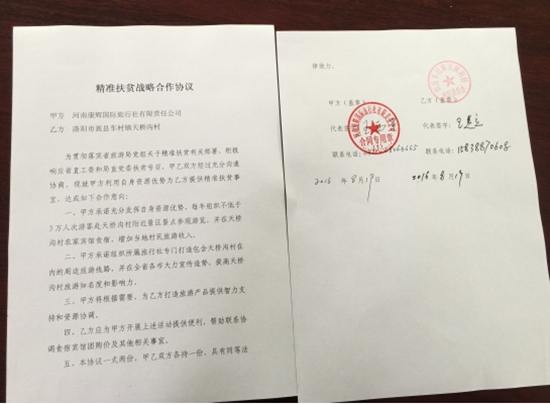 精准扶贫战略合作协议
甲方 河南康辉国际旅行社有限责任公司
乙方 洛阳市嵩县车村镇天桥沟村
为贯彻落实省旅游局党组关于精准扶贫有关部署,积极
响应省直工委和局直党委扶贫号召,甲乙双方经过充分沟通
协调,现就甲方利用自身资源优势为乙方提供精准扶贫事
宜,达成如下合作意向:
一、甲方承诺充分发挥自身资源优势,每年组织不低于
3万人次游客赴天桥沟村附近景区景点参观游览,并在天桥
沟村农家宾馆食宿,增加当地村民旅游收入。
二、甲方承诺组织所属旅行社专门打造包含天桥沟村在
内的周边旅游线路,并在全省各市大力宣传造势,提高天桥
沟村旅游知名度和影响力。
三、甲方将根据需要,为乙方打造旅游产品提供智力支
持和资源协调。
四、乙方应为甲方开展上述活动提供便利,帮助联系协
调食宿宾馆团购价及其他相关事宜。
五、本协议一式两份,甲乙双方各持一份,具有同等法
律效力。
甲方(盖章) 乙方(盖章)
代表签字: 代表签字:
合同专用章
联系电话: 联系电话:15838870608
2016年8月19日 2016年8月19日